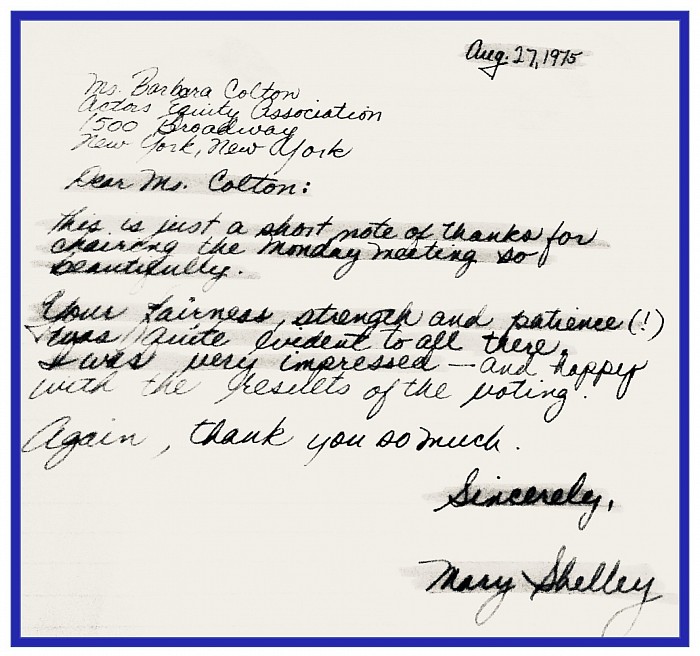 Aug. 27, 1975
Ms. Barbara Colton
Actors Equity Association
1500 Broadway
New York, New York
Dear Ms. Colton:
This is just a short note of thanks for
chairing the Monday meeting so
beautifully.
Your fairness, strength and patience (!)
was quite evident to all there.
I was very impressed — and happy
with the results of the voting.
Again, thank you so much.
Sincerely,
Mary Shelley